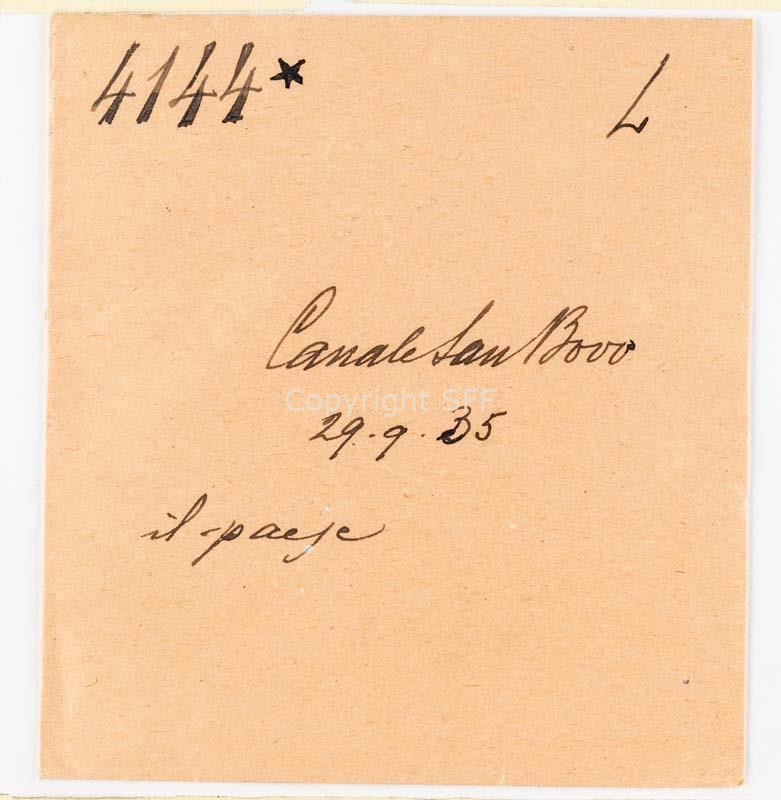 4144* L
Canale San Bovo
Copyright SFF
29.9.35
il paese